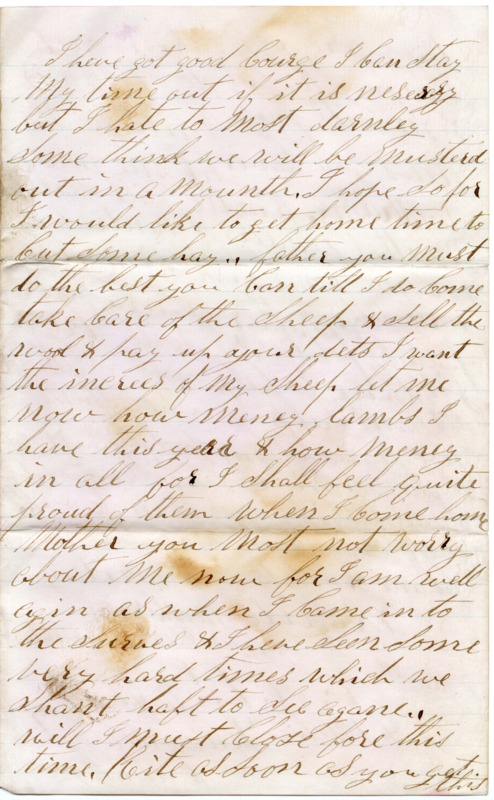 I heve got good Courge I Can Stay
My time out if it is neserry
but I hate to Most darnley
Some think we will be Musterd
out in a Mounth. I hope So for
I would like to get home time to
Cut Some hay.. father you Must
do the best you Can till I do Come
take Care of the Sheep & Sell the
wool & pay up your dets I want
the increes of My Sheep let me
now how meney lambs I
have this year & how meney
in all for I Shall feel quite
proud of them when I Come home
Mother you Most not worry
about Me now for I am well
agin as when I Came in to
the Surves & I heve Seen Some
very hard times which we
shant haft to See agane..
will I Must Close fore this
time. Rite as soon as you get
this